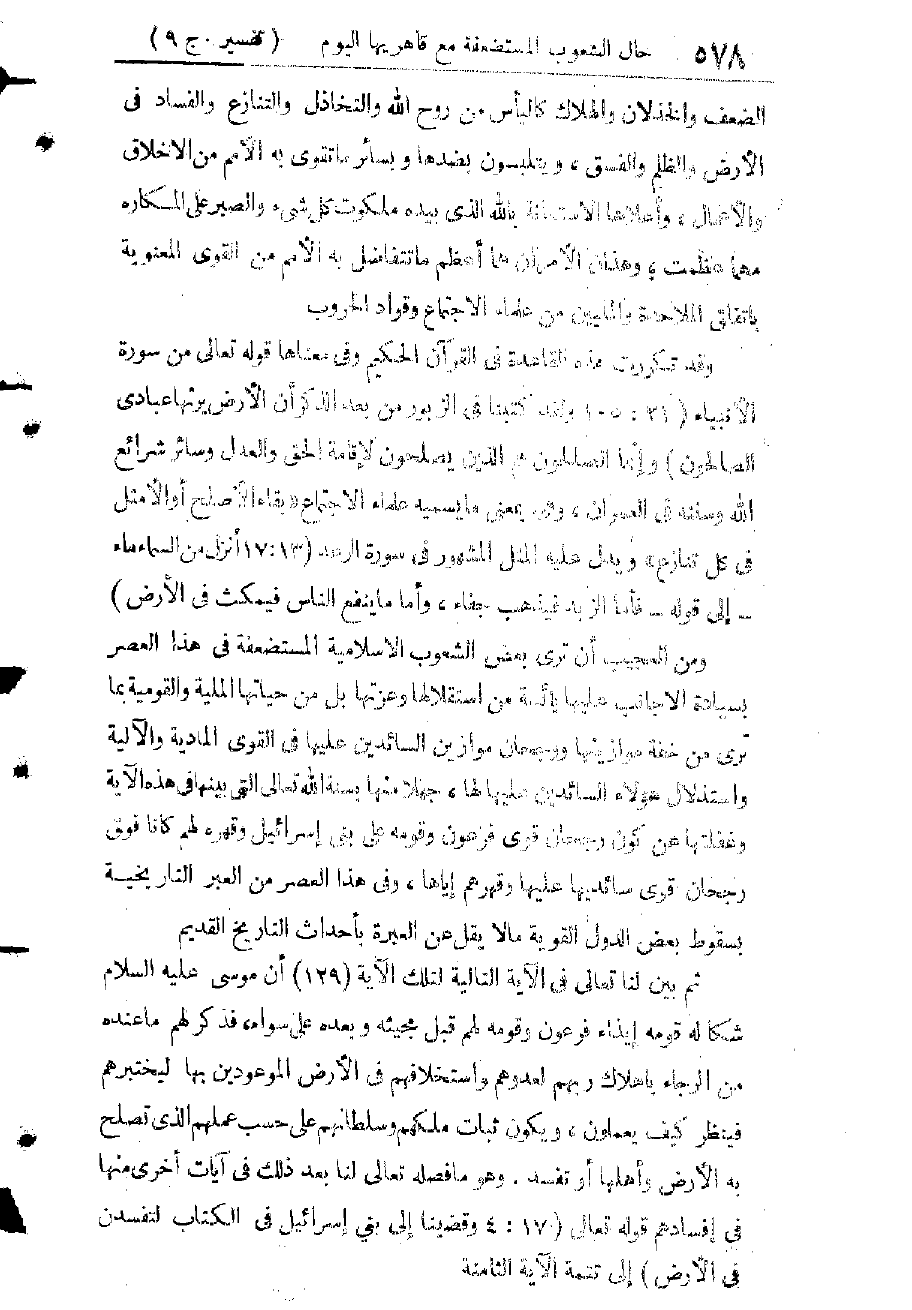 ٥٧٨ حال الشعوب المستضعفة مع قاهريها اليوم ( تفسير . ج ٩ )
الضعف والخذلان والهلاك كاليأس من روح الله والتخاذل والتنازع والفساد فى
الأرض والظلم والفسق ، ويتلبسون بضدها وبسائر ماتقوى به الأمم من الاخلاق
والأعمال ، وأعلاها الاستعانة بالله الذى بيده ملكوت كل شىء والصبر على المكاره
مهما عظمت ، وهذان الأمران هما أعظم ماتتفاضل به الأمم من القوى المعنوية
باتفاق الملاحدة والمليين من علماء الاجتماع وقواد الحروب
وقد تكررت هذه القاعدة فى القرآن الحكيم وفى معناها قوله تعالى من سورة
الأنبياء ( ٢١ : ١٠٥ ولقد كتبنا فى الزبور من بعد الذكر أن الأرض يرثها عبادى
الصالحون ) وإنما الصالحون هم الذين يصلحون لإقامة الحق والعدل وسائر شرائع
الله وسننه فى العمران ، وهى بمعنى مايسميه علماء الاجتماع « بقاء الأصلح أو الأمثل
فى كل تنازع » ويدل عليه المثل المشهور فى سورة الرعد (١٧:١٣ أنزل من السماء ماء
ـ إلى قوله ـ فأما الزبد فيذهب جفاء ، وأما ماينفع الناس فيمكث فى الأرض )
ومن العجيب أن ترى بعض الشعوب الاسلامية المستضعفة فى هذا العصر
بسيادة الاجانب عليها يائسة من استقلالها وعزتها بل من حياتها الملية والقومية بما
ترى من خفة موازينها ورجحان موازين السائدين عليها فى القوى المادية والآلية
واستذلال هؤلاء السائدين عليها لها ، جهلا منها بسنة الله تعالى التى بينها فى هذه الآية
وغفلتها عن كون رجحان قوى فرعون وقومه على بنى إسرائيل وقهره لهم كانا فوق
رجحان قوى سائديها عليها وقهرهم إياها ، وفى هذا العصر من العبر التاريخية
بسقوط بعض الدول القوية مالا يقل عن العبرة بأحداث التاريخ القديم
ثم بين لنا تعالى فى الآية التالية لتلك الآية (١٢٩) أن موسى عليه السلام
شكا له قومه إيذاء فرعون وقومه لهم قبل مجيئه وبعده على سواء، فذكر لهم ماعنده
من الرجاء باهلاك ربهم لعدوهم واستخلافهم فى الأرض الموعودين بها ليختبرهم
فينظر كيف يعملون ، ويكون ثبات ملكهم وسلطانهم على حسب عملهم الذى تصلح
به الأرض وأهلها أو تفسد . وهو مافصله تعالى لنا بعد ذلك فى آيات أخرى منها
فى إفسادهم قوله تعالى (١٧ : ٤ وقضينا إلى بني إسرائيل فى الكتاب لتفسدن
فى الأرض ) إلى تتمة الآية الثامنة